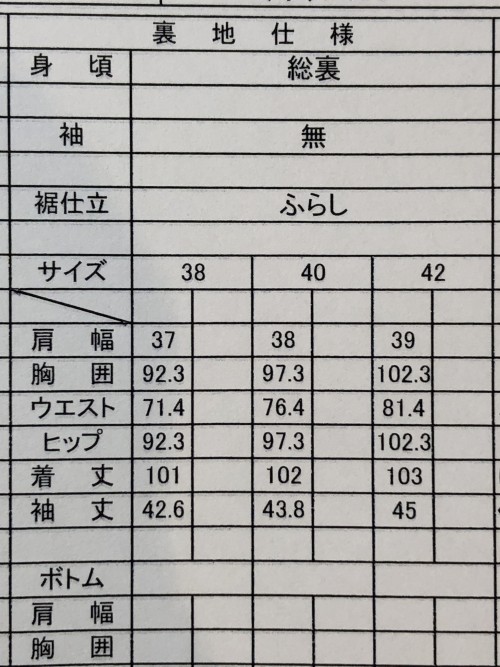 裏地仕様
身頃 総裏
袖 無
裾仕立 ふらし
サイズ 38 40 42
肩幅 37 38 39
胸囲 92.3 97.3 102.3
ウエスト 71.4 76.4 81.4
ヒップ 92.3 97.3 102.3
着丈 101 102 103
袖丈 42.6 43.8 45
ボトム
肩幅
胸囲